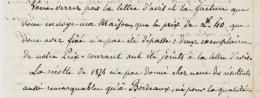 Vous verrez par la lettre d'avis et la facture que
vous envoye ma Maison que le prix de 2f 40 que
vous avez fixé n'a pas été dépassé; deux exemplaires
de notre Prix-courant ont été joints à la lettre d'avis.
La récolte de 1874 n'a pas donné chez nous des résultats
aussi remarquables qu'à Bordeaux, ni pour la qualité